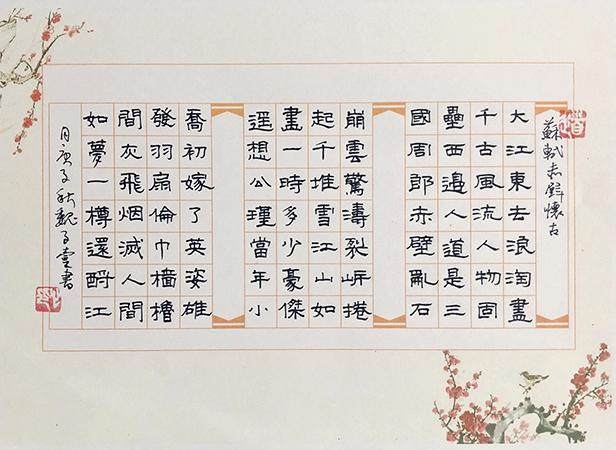 蘇軾赤壁懷古
大江東去浪淘盡
千古風流人物固
壘西邊人道是三
國周郎赤壁亂石
崩雲驚濤裂岍捲
起千堆雪江山如
畫一時多少豪傑
遥想公瑾當年小
喬初嫁了英姿雄
發羽扇倫巾檣櫓
間灰飛烟滅人間
如夢一樽還酹江
月庚子秋魏子書